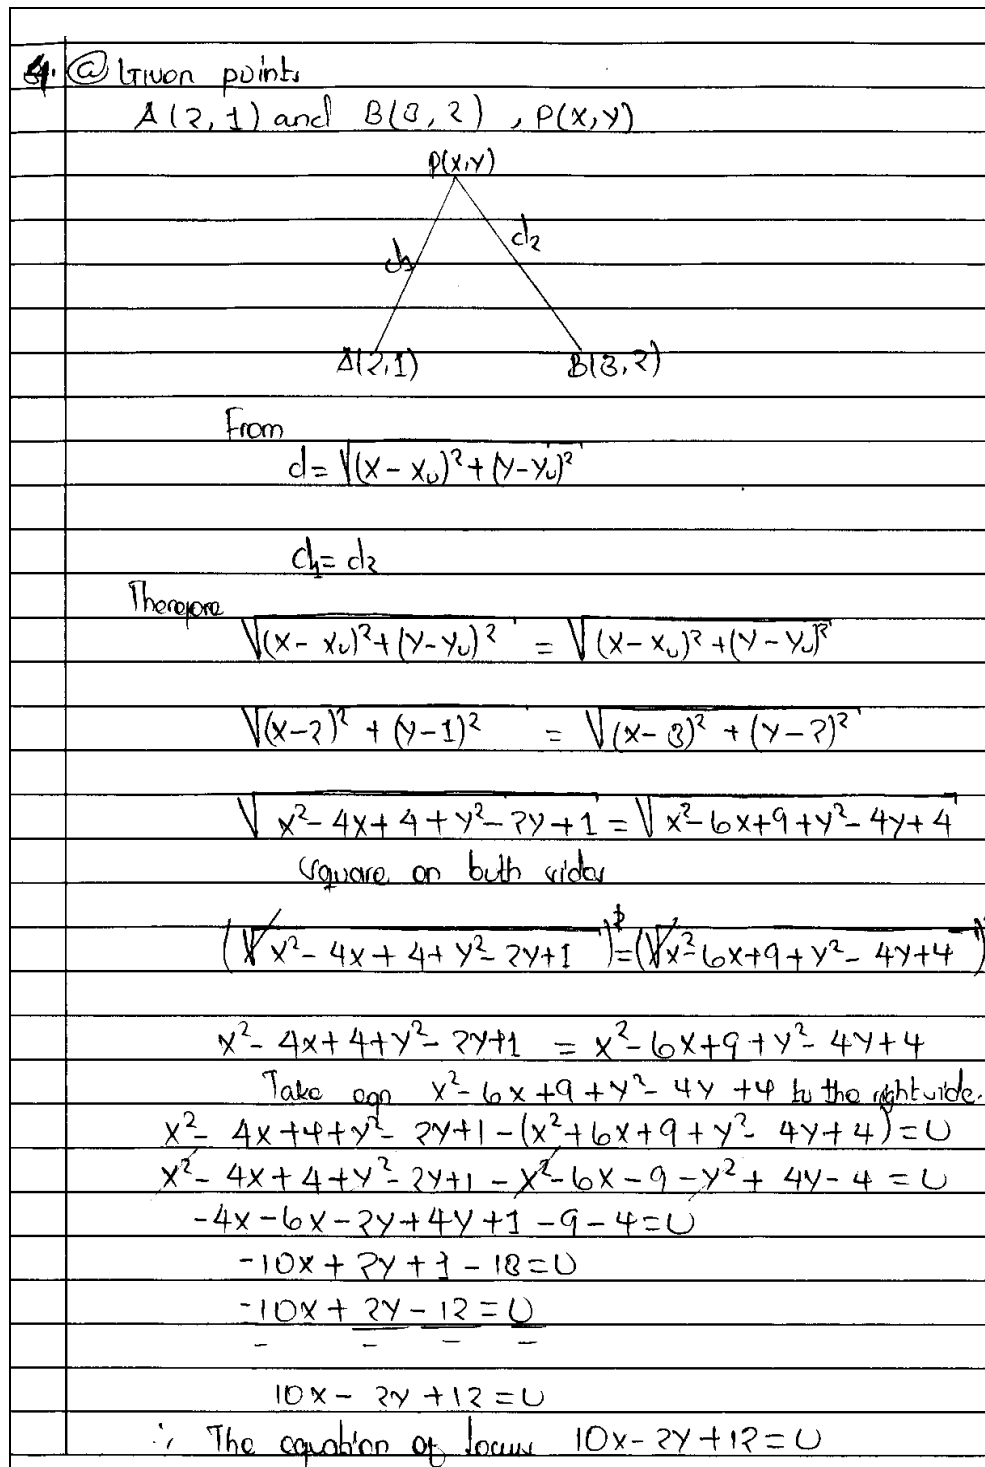 4. (a) Given points
A(2,1) and B(3,2), P(x,y)
P(x,y)
d1 d2
A(2,1) B(3,2)
From
d = √(x - x₀)² + (y - y₀)²
d1 = d2
Therefore
√(x - x₀)² + (y - y₀)² = √(x - x₀)² + (y - y₀)²
√(x-2)² + (y-1)² = √(x-3)² + (y-2)²
√x² - 4x + 4 + y² - 2y + 1 = √x² - 6x + 9 + y² - 4y + 4
square on both sides
(√x² - 4x + 4 + y² - 2y + 1)² = (√x² - 6x + 9 + y² - 4y + 4)
x² - 4x + 4 + y² - 2y + 1 = x² - 6x + 9 + y² - 4y + 4
Take eqn x² - 6x + 9 + y² - 4y + 4 to the right side.
x² - 4x + 4 + y² - 2y + 1 - (x² + 6x + 9 + y² - 4y + 4) = 0
x² - 4x + 4 + y² - 2y + 1 - x² - 6x - 9 - y² + 4y - 4 = 0
-4x - 6x - 2y + 4y + 1 - 9 - 4 = 0
-10x + 2y + 1 - 13 = 0
-10x + 2y - 12 = 0
- - - -
10x - 2y + 12 = 0
∴ The equation of locus 10x - 2y + 12 = 0